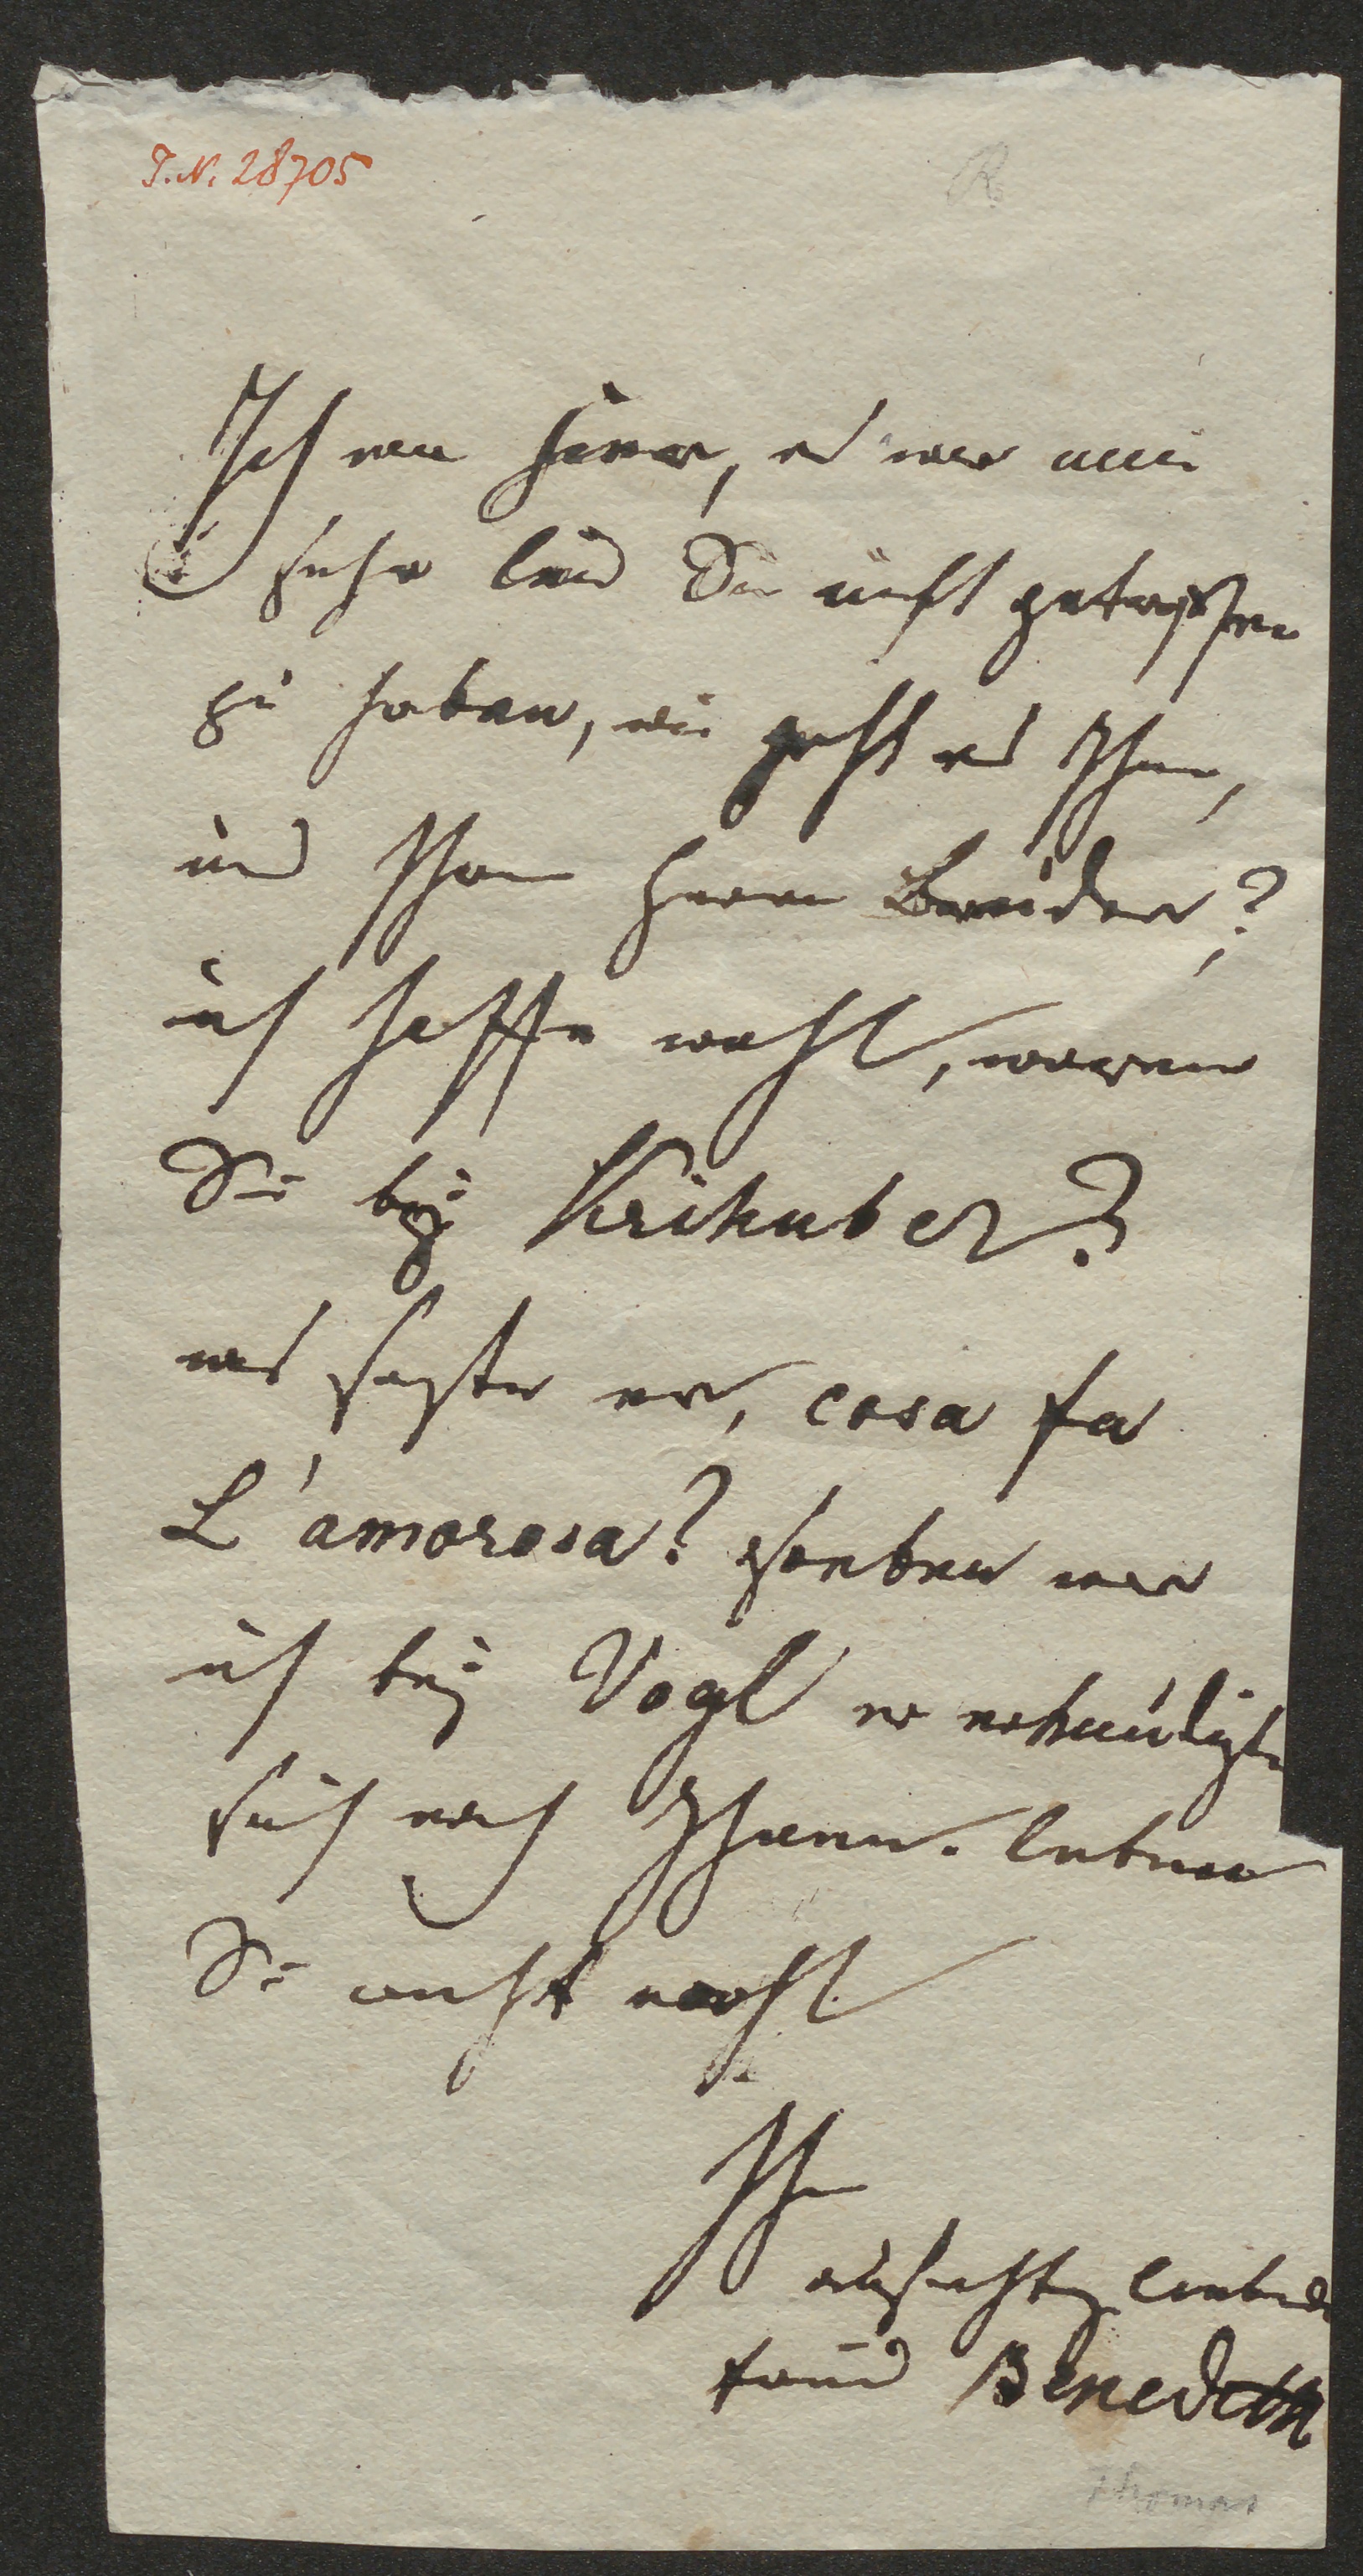 I.N. 28705
R
Ich war hier, es war mir
sehr leid Sie nicht getroffen
zu haben, wie geht es Ihnen,
und Ihrem Herrn Bruder?
ich hoffe wohl, waren
Sie bey Krihuber?
was sagte er, cosa fa
L'amorosa? soeben war
ich bey Vogl er erkundigte
sich nach Ihnen. leben
Sie recht wohl
Ihr
aufrichtig liebender
Freund Benedetti
Thomas